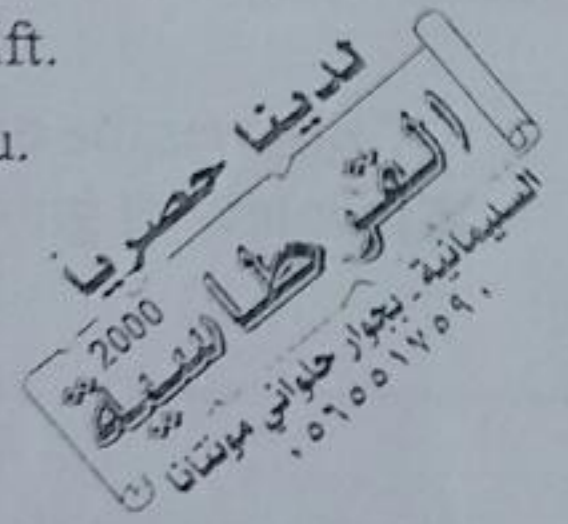 ft.
u.
لدينا حصريا
القرطاسية
2000
السليمانية - بجوار حلواني مونتانا
٠٥٦٥٥١٧٥٩٠